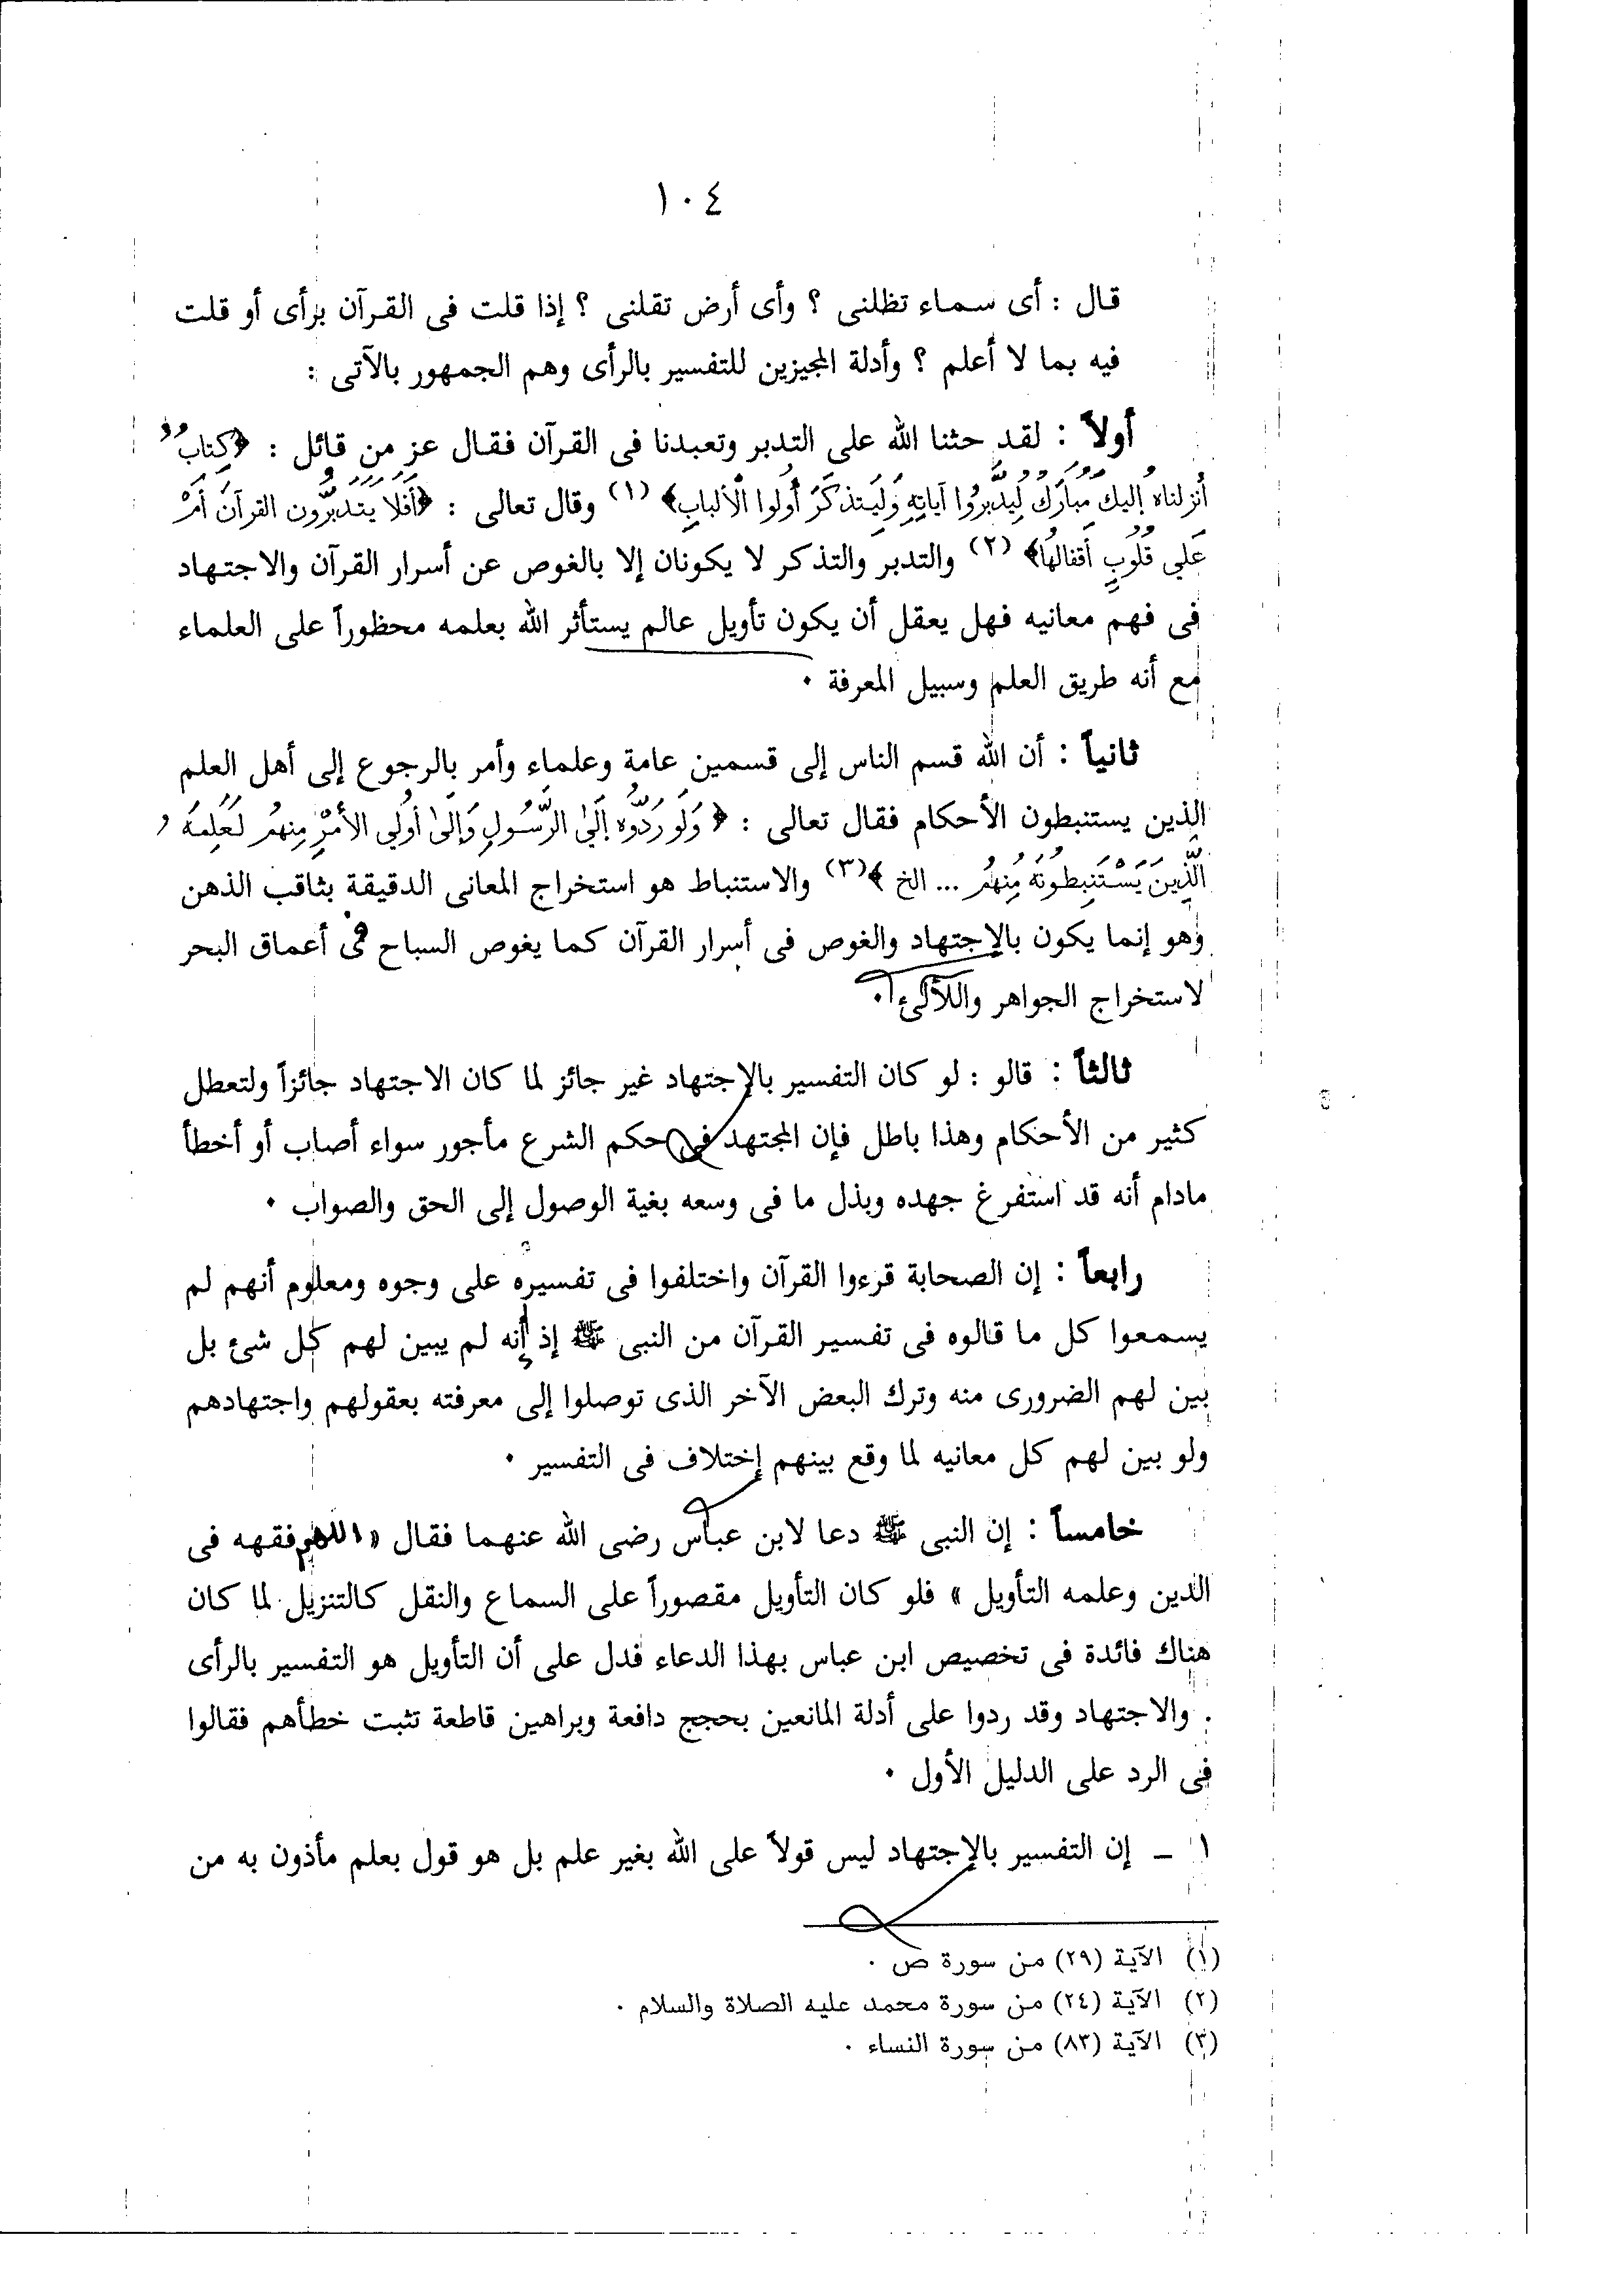 ١٠٤
قال : أى سماء تظلنى ؟ وأى أرض تقلنى ؟ إذا قلت فى القرآن برأى أو قلت
فيه بما لا أعلم ؟ وأدلة المجيزين للتفسير بالرأى وهم الجمهور بالآتى :
أولاً : لقد حثنا الله على التدبر وتعبدنا فى القرآن فقال عز من قائل : ﴿كِتابٌ
أنزلناهُ إليك مُبَارَكٌ لِيَدَّبَّرُوا آيَاتِهِ وَلِيَتَذَكَّرَ أُولُوا الْأَلْبَابِ﴾ (١) وقال تعالى : ﴿أَفَلاَ يَتَدَبَّرُون القرآنَ أَمْ
عَلى قُلُوبٍ أقفالُها﴾ (٢) والتدبر والتذكر لا يكونان إلا بالغوص عن أسرار القرآن والاجتهاد
فى فهم معانيه فهل يعقل أن يكون تأويل عالم يستأثر الله بعلمه محظوراً على العلماء
مع أنه طريق العلم وسبيل المعرفة .
ثانياً : أن الله قسم الناس إلى قسمين عامة وعلماء وأمر بالرجوع إلى أهل العلم
الذين يستنبطون الأحكام فقال تعالى : ﴿ وَلَو رَدُّوه إلَى الرَّسُولِ وَإلَى أُولِي الأمْرِ مِنهُم لَعَلِمَهُ
الَّذِينَ يَسْتَنبِطُونَهُ مِنهُم ... الخ ﴾(٣) والاستنباط هو استخراج المعانى الدقيقة بثاقب الذهن
وهو إنما يكون بالإجتهاد والغوص فى أسرار القرآن كما يغوص السباح فى أعماق البحر
لاستخراج الجواهر واللآلئ .
ثالثاً : قالو : لو كان التفسير بالإجتهاد غير جائز لما كان الاجتهاد جائزاً ولتعطل
كثير من الأحكام وهذا باطل فإن المجتهد فى حكم الشرع مأجور سواء أصاب أو أخطأ
مادام أنه قد استفرغ جهده وبذل ما فى وسعه بغية الوصول إلى الحق والصواب .
رابعاً : إن الصحابة قرءوا القرآن واختلفوا فى تفسيره على وجوه ومعلوم أنهم لم
يسمعوا كل ما قالوه فى تفسير القرآن من النبى ﷺ إذ أنه لم يبين لهم كل شئ بل
بين لهم الضرورى منه وترك البعض الآخر الذى توصلوا إلى معرفته بعقولهم واجتهادهم
ولو بين لهم كل معانيه لما وقع بينهم إختلاف فى التفسير .
خامساً : إن النبى ﷺ دعا لابن عباس رضى الله عنهما فقال « اللهم فقهه فى
الدين وعلمه التأويل » فلو كان التأويل مقصوراً على السماع والنقل كالتنزيل لما كان
هناك فائدة فى تخصيص ابن عباس بهذا الدعاء فدل على أن التأويل هو التفسير بالرأى
. والاجتهاد وقد ردوا على أدلة المانعين بحجج دافعة وبراهين قاطعة تثبت خطأهم فقالوا
فى الرد على الدليل الأول .
١ ـ إن التفسير بالإجتهاد ليس قولاً على الله بغير علم بل هو قول بعلم مأذون به من
(١) الآية (٢٩) من سورة ص .
(٢) الآية (٢٤) من سورة محمد عليه الصلاة والسلام .
(٣) الآية (٨٣) من سورة النساء .